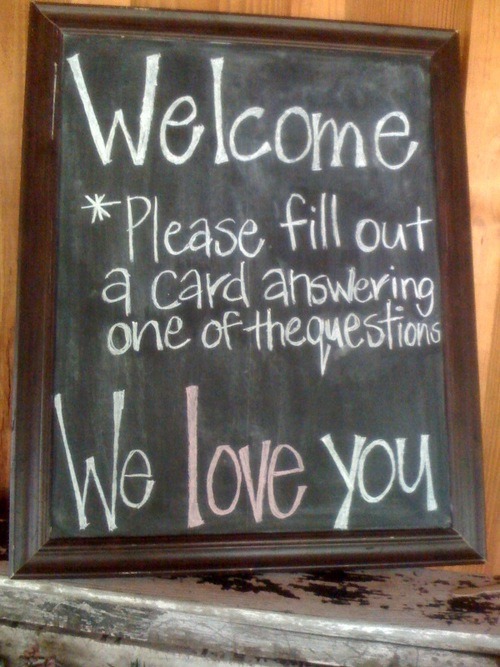 Welcome
*Please fill out
a card answering
one of the questions
We love you